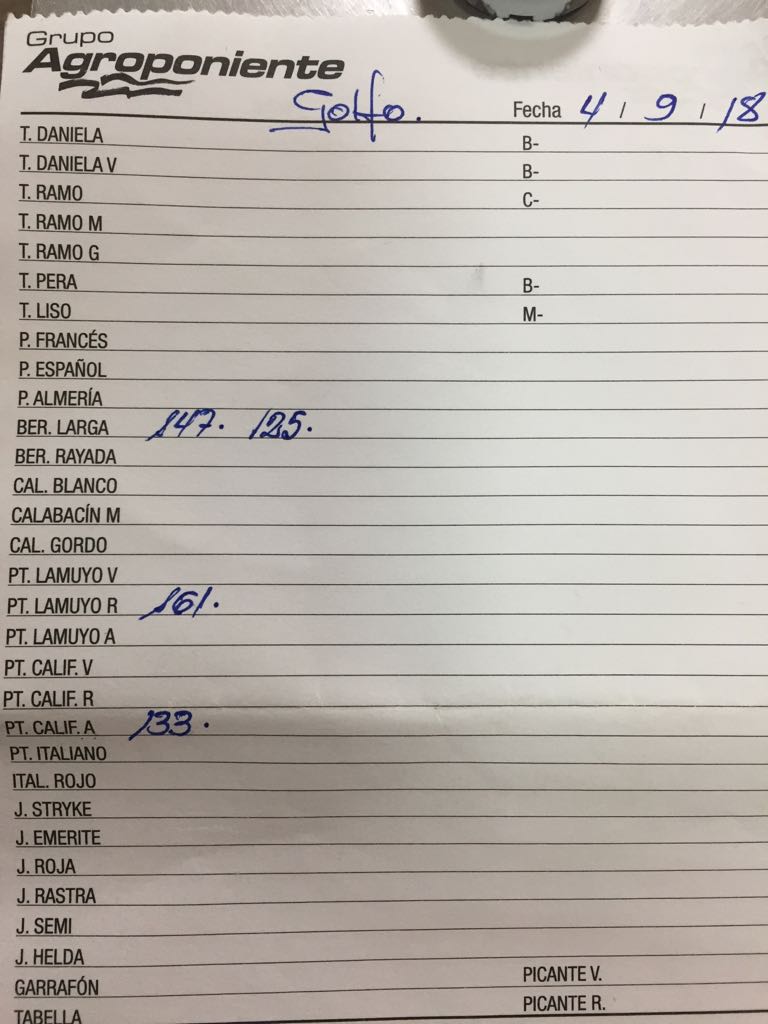 Grupo
Agroponiente
Golfo. Fecha 4 / 9 / 18
T. DANIELA B-
T. DANIELA V B-
T. RAMO C-
T. RAMO M
T. RAMO G
T. PERA B-
T. LISO M-
P. FRANCÉS
P. ESPAÑOL
P. ALMERÍA
BER. LARGA 147. 125.
BER. RAYADA
CAL. BLANCO
CALABACÍN M
CAL. GORDO
PT. LAMUYO V
PT. LAMUYO R 161.
PT. LAMUYO A
PT. CALIF. V
PT. CALIF. R
PT. CALIF. A 133.
PT. ITALIANO
ITAL. ROJO
J. STRYKE
J. EMERITE
J. ROJA
J. RASTRA
J. SEMI
J. HELDA
GARRAFÓN PICANTE V.
TABELLA PICANTE R.